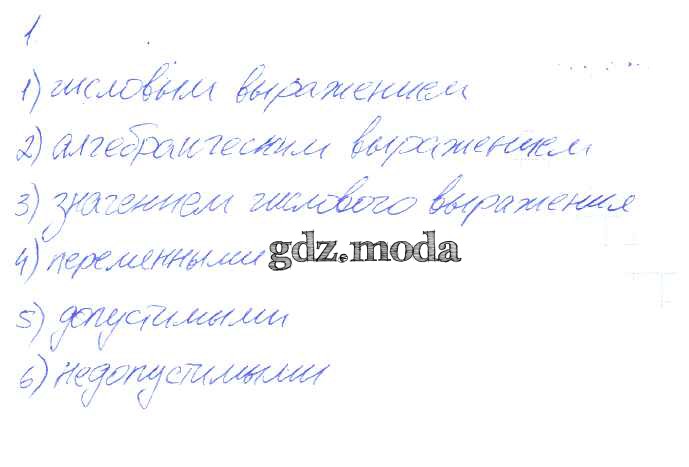 1
1) числовым выражением
2) алгебраическим выражением
3) значением числового выражения
4) переменными
gdz.moda
5) допустимыми
6) недопустимыми